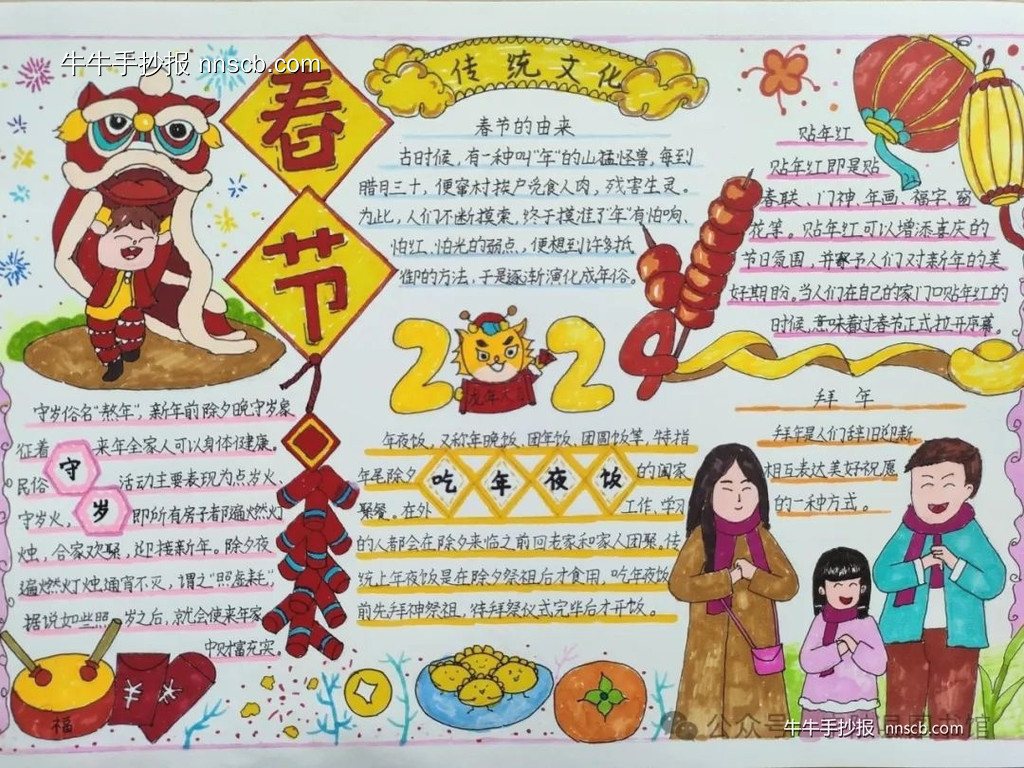 牛牛手抄报 nnscb.com
春节
传统文化
春节的由来
古时候,有一种叫"年"的山猛怪兽,每到
腊月三十,便窜村挨户觅食人肉,残害生灵。
为此,人们不断摸索,终于摸准了"年"有怕响、
怕红、怕光的弱点,便想到许多抵
御的方法,于是逐渐演化成年俗。
贴年红
贴年红即是贴
春联、门神、年画、福字、窗
花等。贴年红可以增添喜庆的
节日氛围,并寄予人们对新年的美
好期盼。当人们在自己的家门口贴年红的
时候,意味着过春节正式拉开序幕。
2024
虎年大吉
守岁俗名"熬年",新年前除夕晚守岁象
征着 来年全家人可以身体健康。
守岁
民俗 活动主要表现为点岁火、
守岁火, 即所有房子都遍燃灯
烛,合家欢聚,迎接新年。除夕夜
遍燃灯烛通宵不灭,谓之"照虚耗",
据说如此照 岁之后,就会使来年家
中财富充实。
年夜饭,又称年晚饭、团年饭、团圆饭等,特指
年尾除夕 的阖家
吃年夜饭
聚餐。在外 工作、学习
的人都会在除夕来临之前回老家和家人团聚,传
统上年夜饭是在除夕祭祖后才食用,吃年夜饭
前先拜神祭祖,待拜祭仪式完毕后才开饭。
拜年
拜年是人们辞旧迎新、
相互表达美好祝愿
的一种方式。
福
公众号
牛牛手抄报 nnscb.com